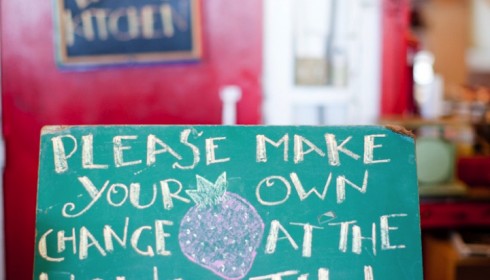 KITCHEN
PLEASE MAKE
YOUR OWN
CHANGE AT THE